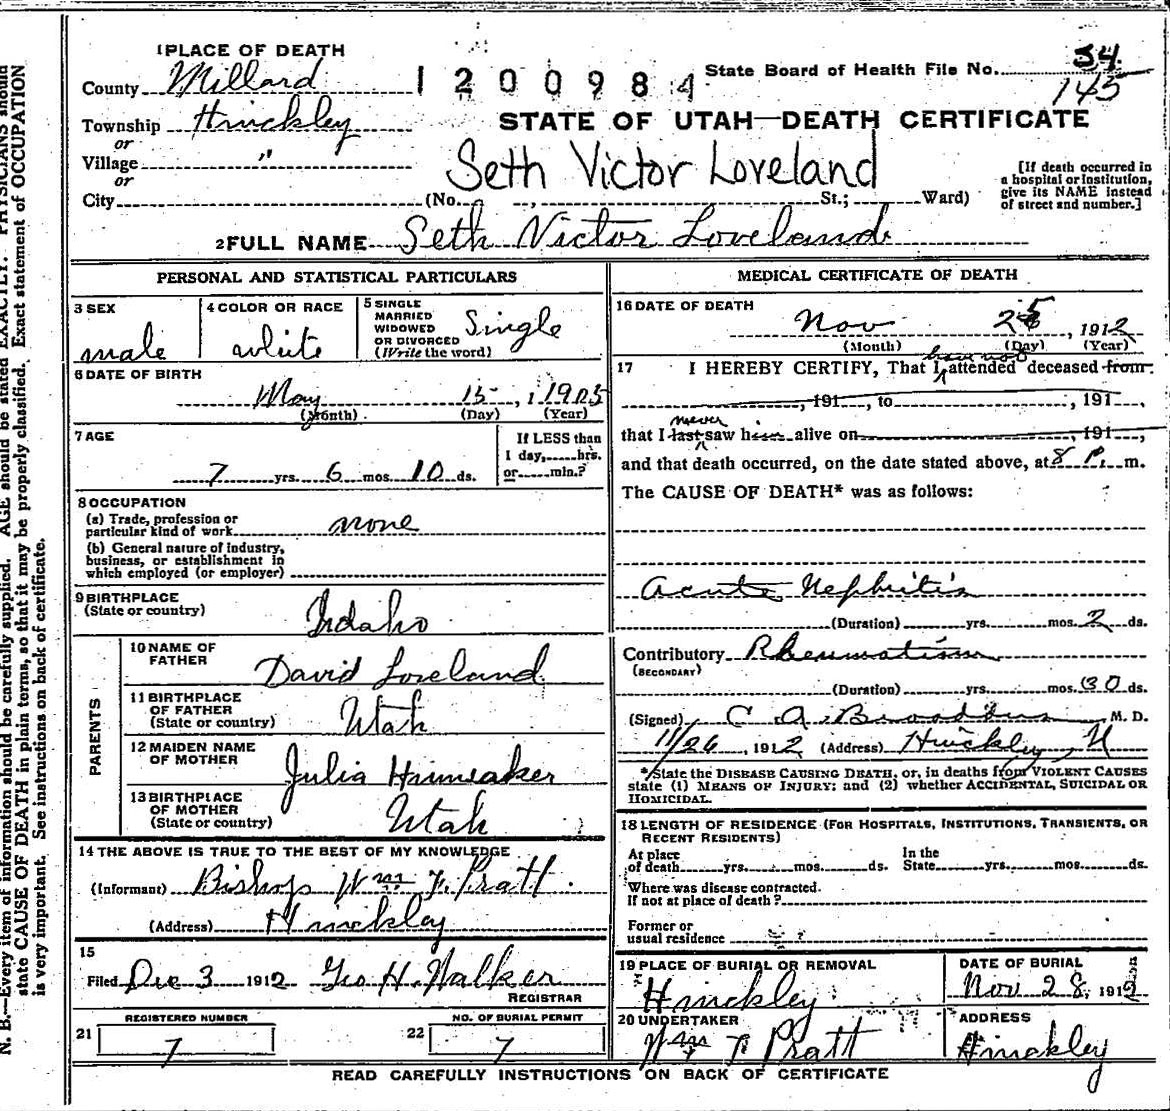 1 PLACE OF DEATH
County Millard
1200984
State Board of Health File No. 34
145
Township Hinckley
or
Village "
or
City (No. , St.; Ward)
STATE OF UTAH—DEATH CERTIFICATE
Seth Victor Loveland
[If death occurred in a hospital or institution, give its NAME instead of street and number.]
2 FULL NAME Seth Victor Loveland
PERSONAL AND STATISTICAL PARTICULARS
3 SEX
male
4 COLOR OR RACE
white
5 SINGLE MARRIED WIDOWED OR DIVORCED (Write the word)
Single
6 DATE OF BIRTH
May 15, 1905
(Month) (Day) (Year)
7 AGE
7 yrs. 6 mos. 10 ds.
If LESS than 1 day, hrs. or min.?
8 OCCUPATION
(a) Trade, profession or particular kind of work none
(b) General nature of industry, business, or establishment in which employed (or employer)
9 BIRTHPLACE
(State or country) Idaho
PARENTS
10 NAME OF FATHER David Loveland
11 BIRTHPLACE OF FATHER (State or country) Utah
12 MAIDEN NAME OF MOTHER Julia
13 BIRTHPLACE OF MOTHER (State or country) Utah
14 THE ABOVE IS TRUE TO THE BEST OF MY KNOWLEDGE
(Informant) Bishop Wm F. Pratt
(Address) Hinckley
15
Filed Dec 3 1912 Geo H. Walker
REGISTRAR
REGISTERED NUMBER
21 7
NO. OF BURIAL PERMIT
22 7
MEDICAL CERTIFICATE OF DEATH
16 DATE OF DEATH
Nov 25, 1912
(Month) (Day) (Year)
17 I HEREBY CERTIFY, That I have not attended deceased from
, 191 , to , 191 ,
that I last never saw him alive on , 191 ,
and that death occurred, on the date stated above, at 8 P. m.
The CAUSE OF DEATH* was as follows:
Acute Nephritis
(Duration) yrs. mos. 2 ds.
Contributory Rheumatism
(SECONDARY)
(Duration) yrs. mos. 30 ds.
(Signed) C A Broaddus M. D.
11/26, 1912 (Address) Hinckley, U
*State the DISEASE CAUSING DEATH, or, in deaths from VIOLENT CAUSES
state (1) MEANS OF INJURY; and (2) whether ACCIDENTAL, SUICIDAL OR
HOMICIDAL.
18 LENGTH OF RESIDENCE (FOR HOSPITALS, INSTITUTIONS, TRANSIENTS, OR
RECENT RESIDENTS)
At place of death yrs. mos. ds. In the State yrs. mos. ds.
Where was disease contracted.
If not at place of death?
Former or
usual residence
19 PLACE OF BURIAL OR REMOVAL
Hinckley
DATE OF BURIAL
Nov 28, 1912
20 UNDERTAKER
Wm F Pratt
ADDRESS
Hinckley
READ CAREFULLY INSTRUCTIONS ON BACK OF CERTIFICATE
N. B.—Every item of information should be carefully supplied. AGE should be stated EXACTLY. PHYSICIANS should
state CAUSE OF DEATH in plain terms, so that it may be properly classified. Exact statement of OCCUPATION
is very important. See instructions on back of certificate.